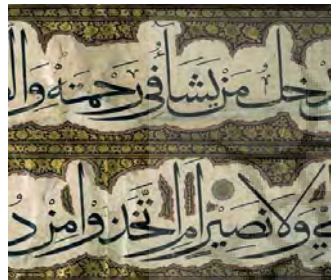 يدخل من يشاء في رحمته وال
ولا نصير ام اتخذوا من د